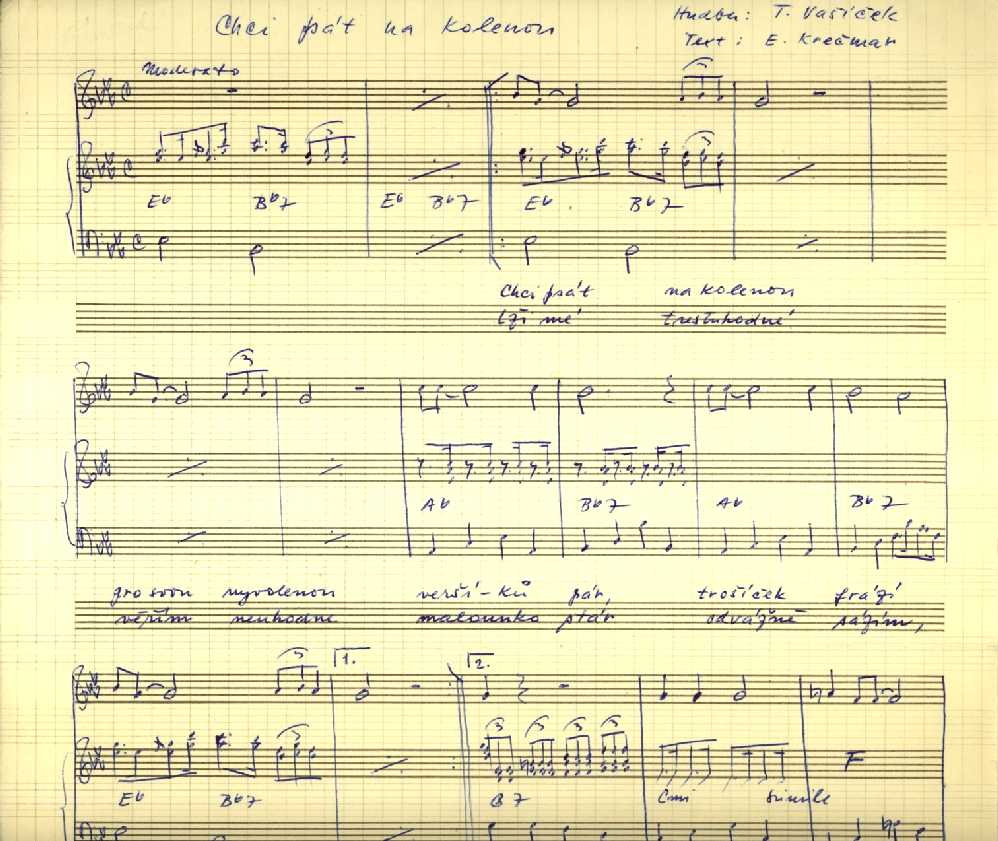 Chci psát na kolenou
Hudba: T. Vašíček
Text: E. Krečmar
Moderato
Eb Bb7 Eb Bb7 Eb Bb7
Chci psát na kolenou
lži mé trestuhodné
3
Ab Bb7 Ab Bb7
pro svou vyvolenou veršíků pár, trošíček frází
věřím neuhodne malounko ptár odvážně sázím,
3 1. 2.
3 3 3 3
Eb Bb7 G7 Cmi simile
F